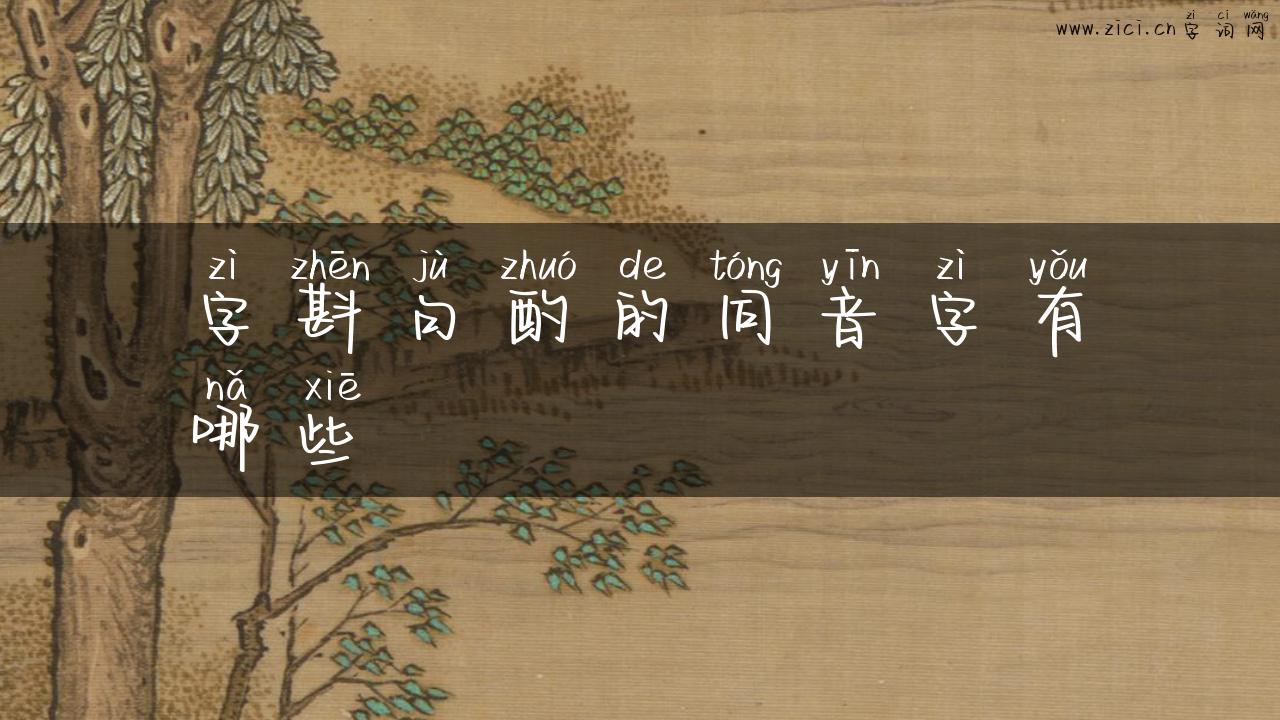 zì cí wǎng
www.zici.cn 字词网
zì zhēn jù zhuó de tóng yīn zì yǒu
字斟句酌的同音字有
nǎ xiē
哪些